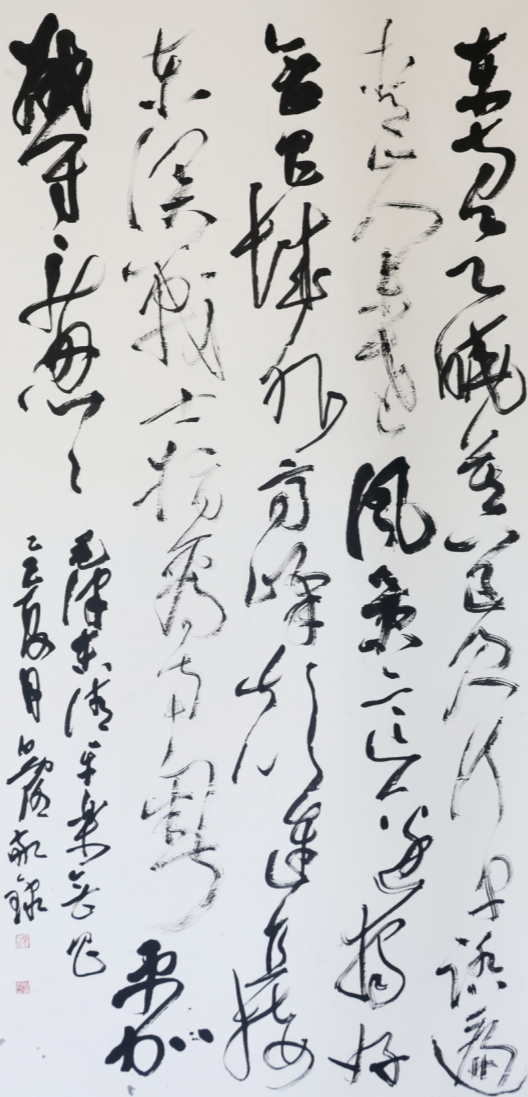 東方欲曉莫道君行早踏遍
青山人未老風景這邊獨好
會昌城外高峰顛連直接
東溟戰士指看南粵更加
鬱鬱葱々
毛澤東清平樂會昌
乙巳夏月敬錄